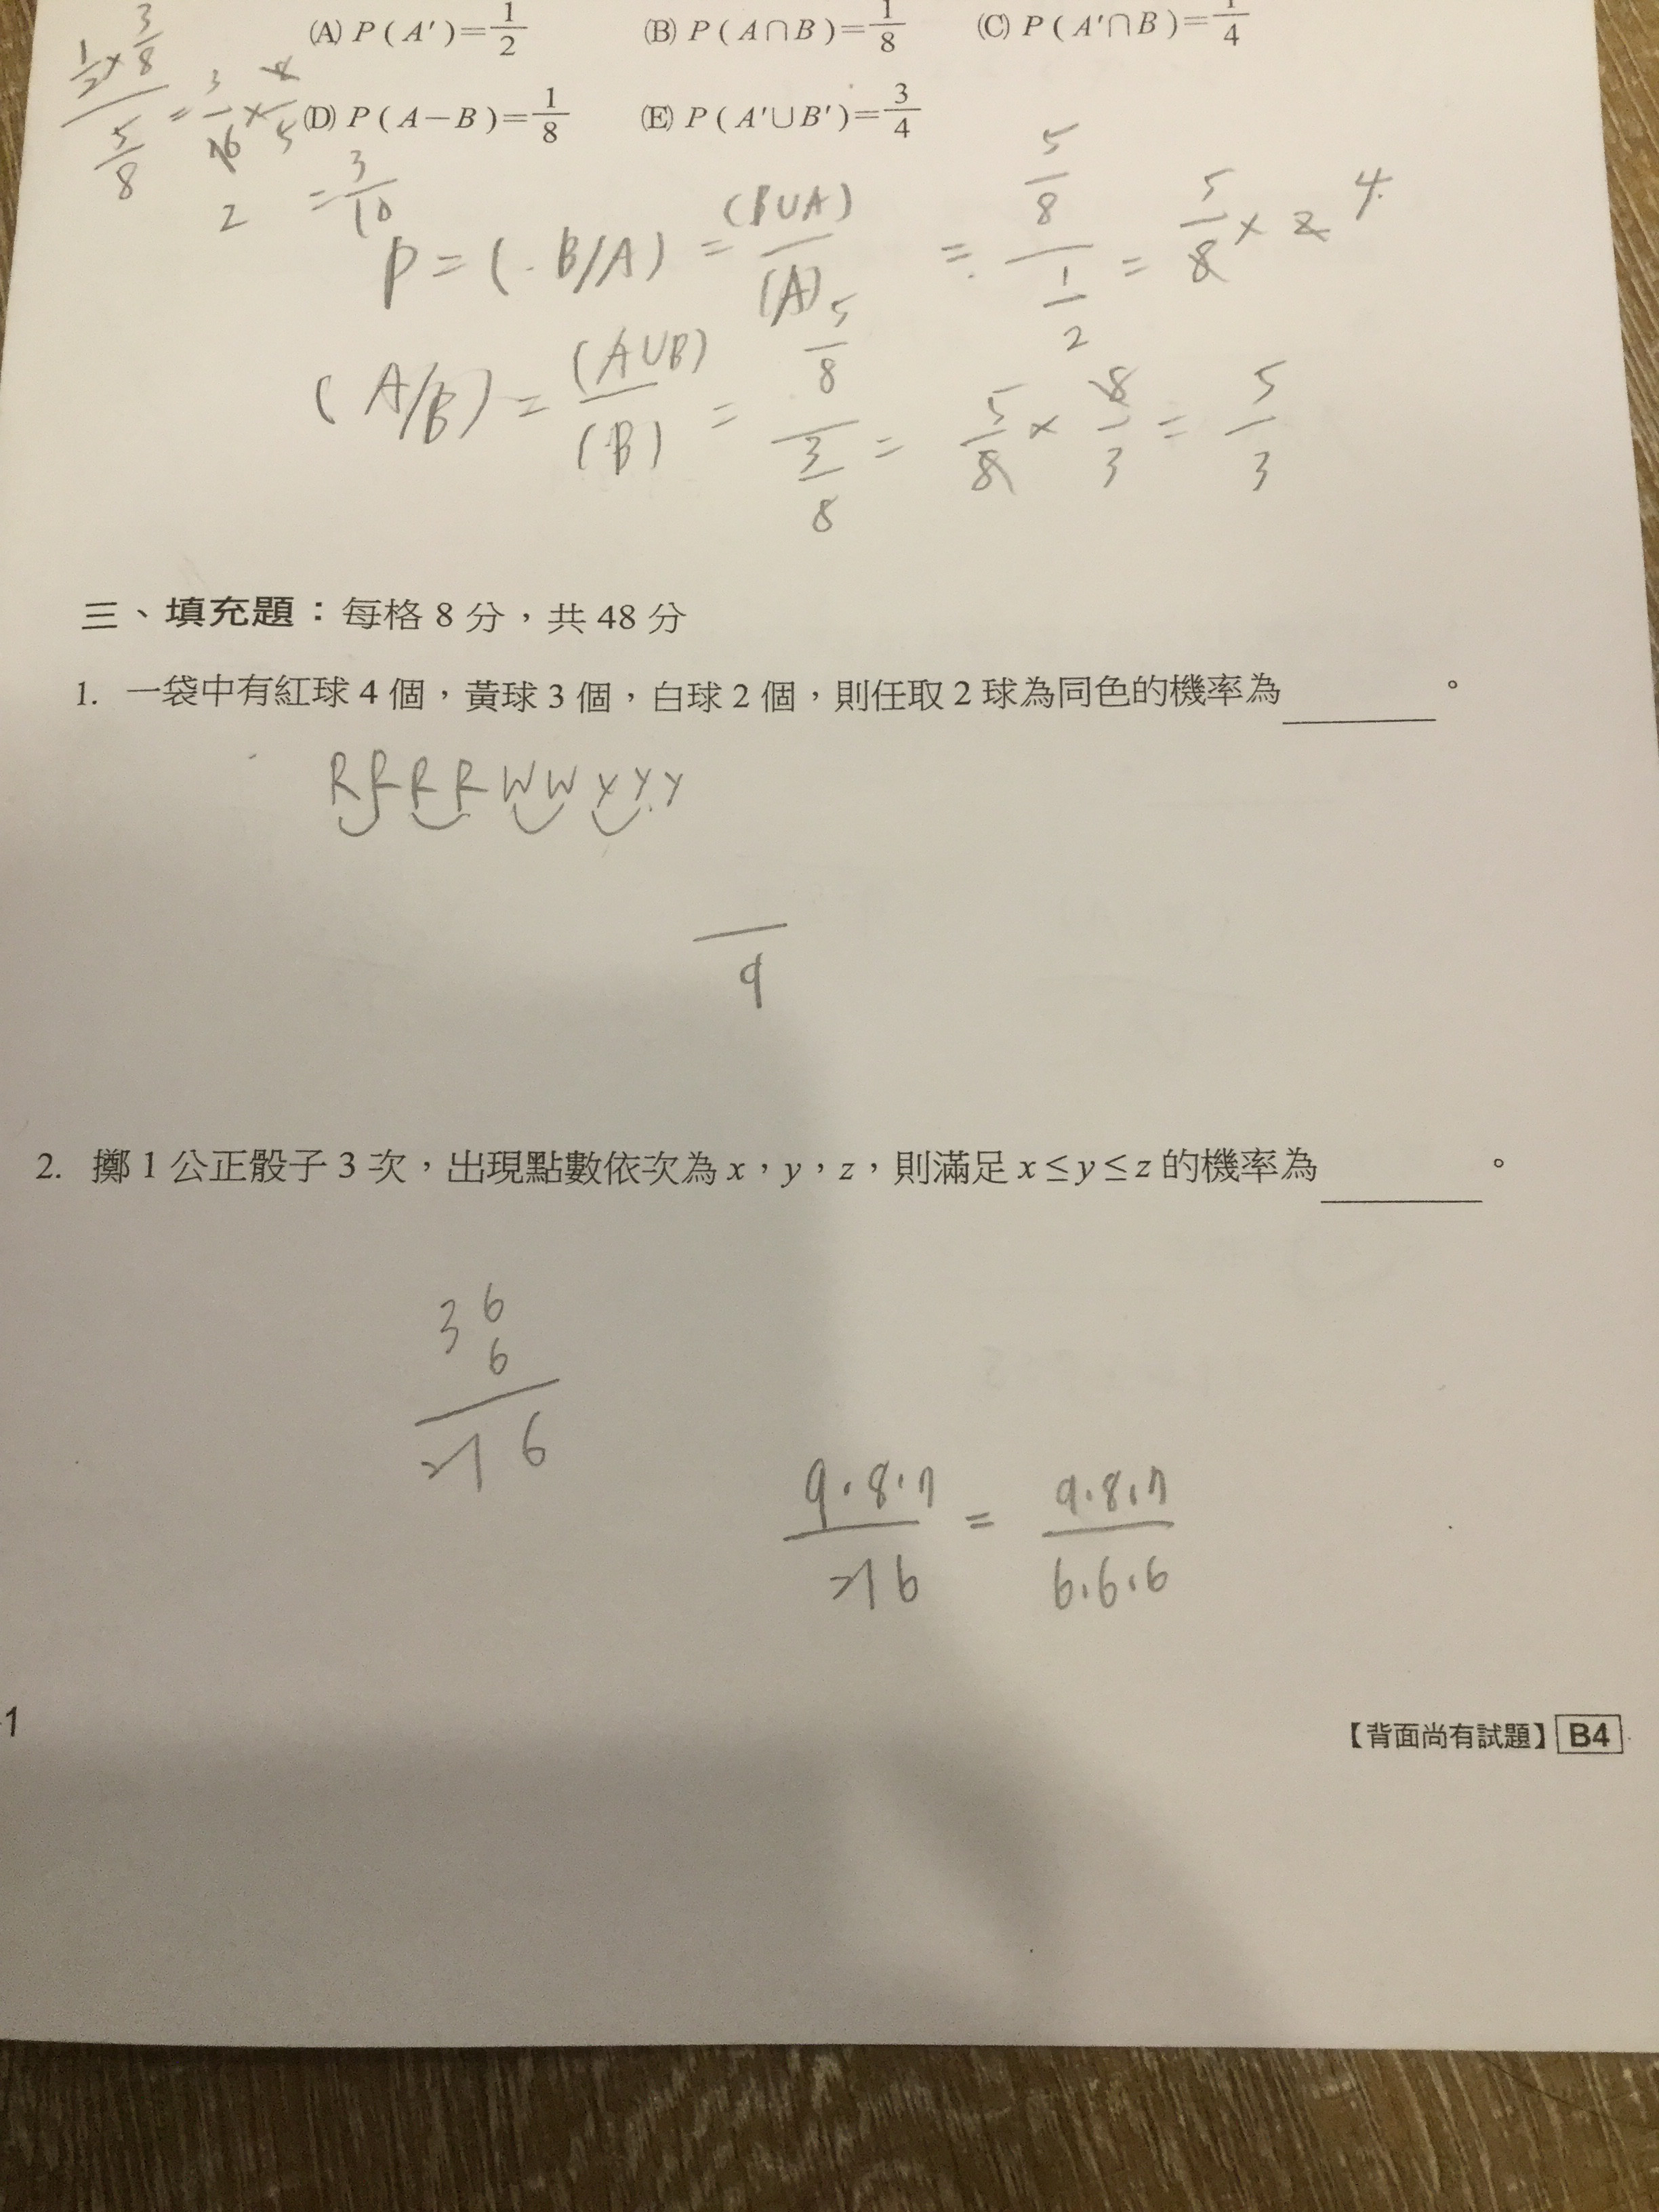 (A) P(A′)=1/2 (B) P(A∩B)=1/8 (C) P(A′∩B)=1/4
(D) P(A−B)=1/8 (E) P(A′∪B′)=3/4
1/2 × 3/8
5/8
= 3/16 × 8/5
2
= 3/10
P = (. B/A) = (B∪A)/(A) = 5/8 / 1/2 = 5/8 × 2 4
(A/B) = (A∪B)/(B) = 5/8 / 3/8 = 5/8 × 8/3 = 5/3
三、填充題：每格 8 分，共 48 分
1. 一袋中有紅球 4 個，黃球 3 個，白球 2 個，則任取 2 球為同色的機率為______。
R R R R W W Y Y Y
9
2. 擲 1 公正骰子 3 次，出現點數依次為 x，y，z，則滿足 x≤y≤z 的機率為______。
36
6
216
9·8·7/216 = 9·8·7/6·6·6
-1
【背面尚有試題】 B4